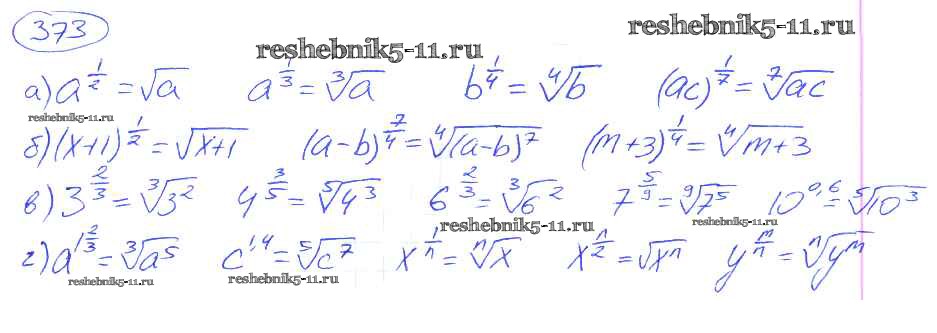 373
reshebnik5-11.ru reshebnik5-11.ru
а) a^{1/2} = √a a^{1/3} = ∛a b^{1/4} = ∜b (ac)^{1/7} = ⁷√ac
reshebnik5-11.ru
б) (x+1)^{1/2} = √x+1 (a-b)^{7/4} = ∜(a-b)^7 (m+3)^{1/4} = ∜m+3
в) 3^{2/3} = ∛3² 4^{3/5} = ⁵√4³ 6^{2/3} = ∛6² 7^{5/9} = ⁹√7⁵ 10^{0,6} = ⁵√10³
reshebnik5-11.ru reshebnik5-11.ru
г) a^{1 2/3} = ∛a⁵ c^{1,4} = ⁵√c⁷ x^{1/n} = ⁿ√x x^{n/2} = √xⁿ y^{m/n} = ⁿ√y^m
reshebnik5-11.ru reshebnik5-11.ru